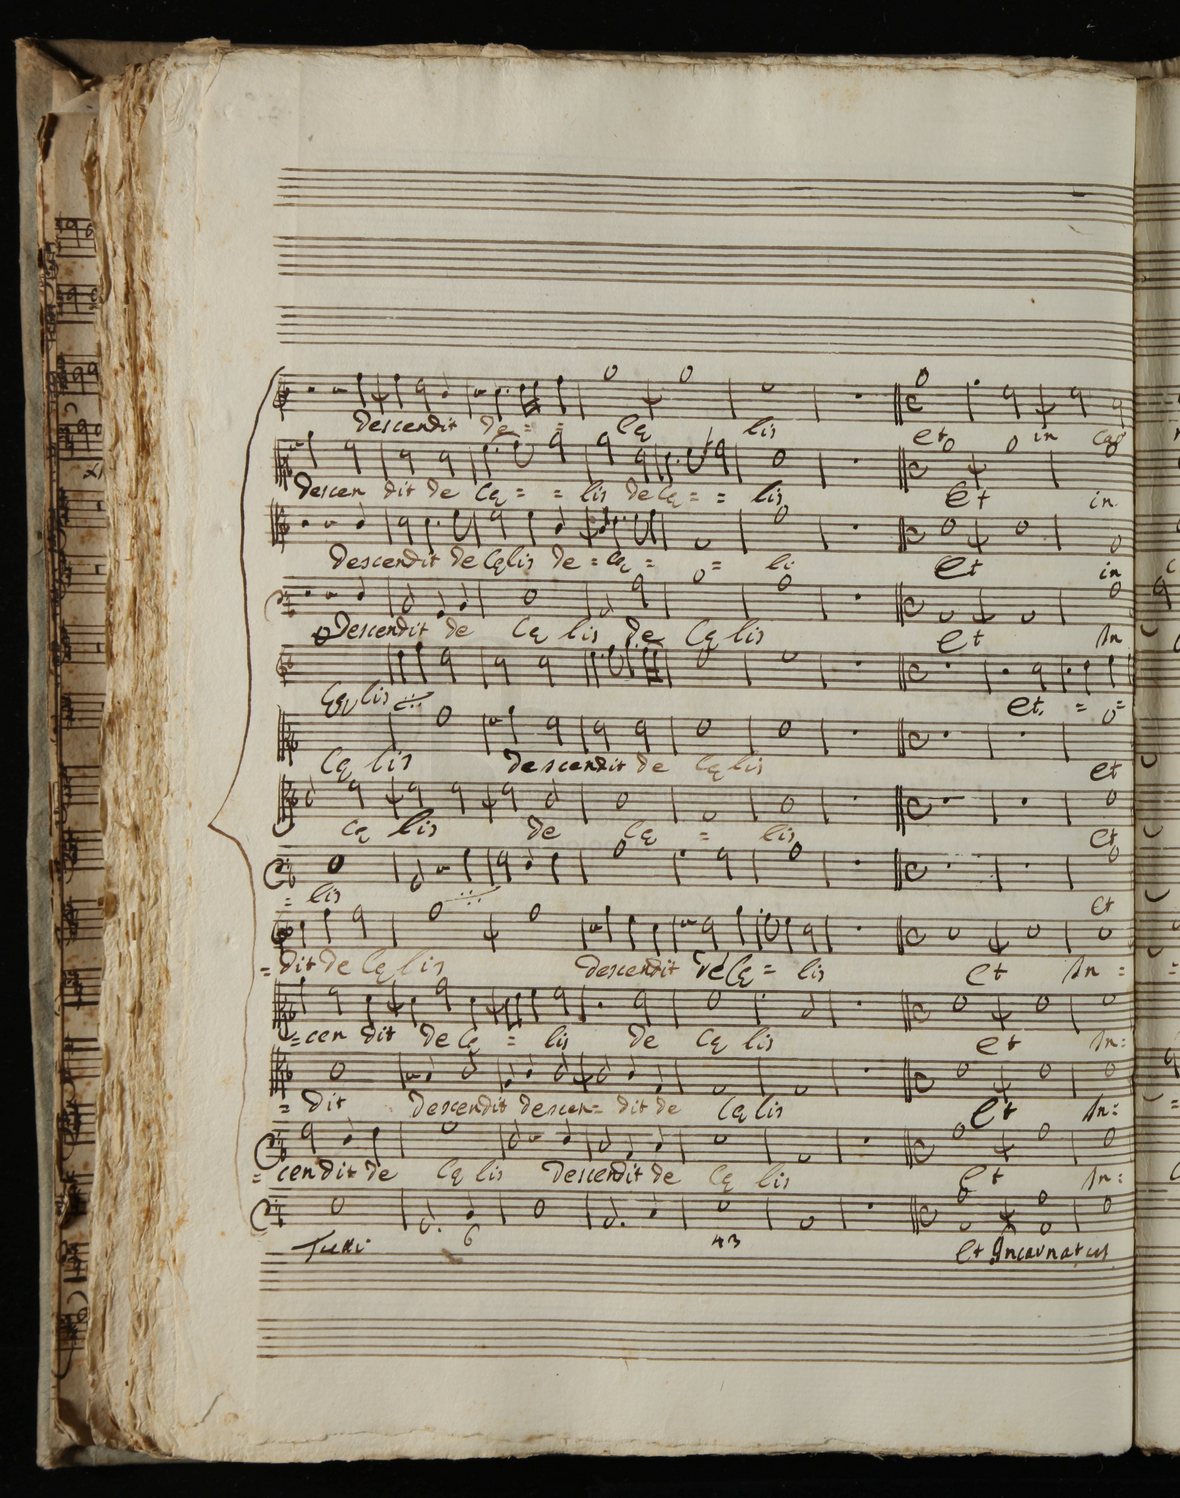 descendit de = = Cę lis et in Car
descen dit de Cę = = lis de Cę = = lis et in
descendit de Cęlis de = Cę = = li et in
Descendit de Cę lis de Cę lis et In
Cę lis et = =
Cę lis descendit de Cę lis et
Cę lis de Cę = lis et
= lis et
= dit de Cę lis descendit de Cę = lis et In =
= cen dit de Cę = lis de Cę lis et In:
= dit descendit descen = dit de Cę lis et In:
= cendit de Cę lis descendit de Cę lis et In:
6
43
Tutti et Incarnatus